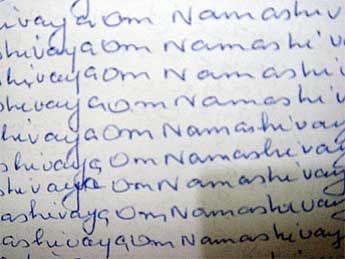 ivaya Om Namashiv
shivaya Om Namashi'v
shivaya Om Namashi'v
shivaya Om Namashi'v
hivaya Om Namashivay
shivaya Om Namashivay
shivaya Om Namashivay
shivaya Om Namashivay
shivaya Om Namashivay